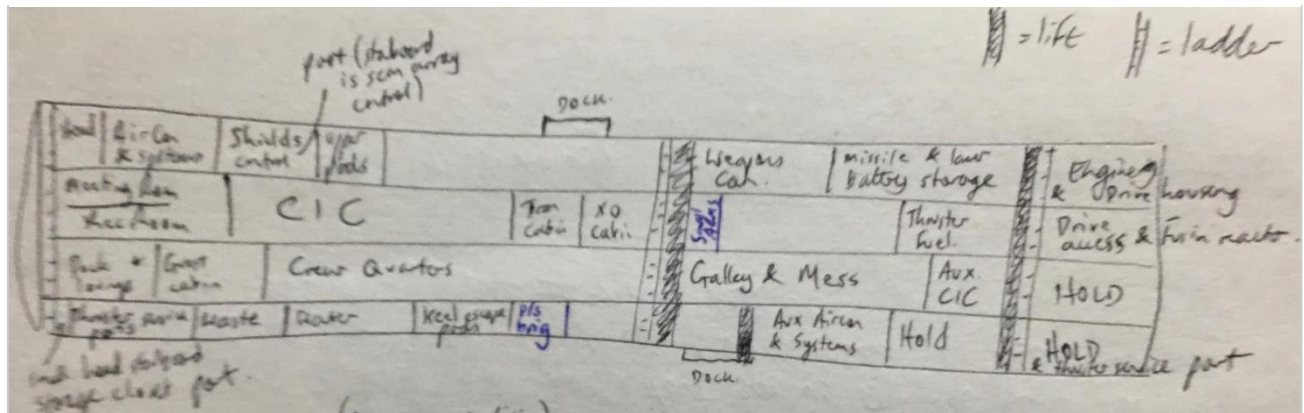 = lift
= ladder
port (starboard
is scan array
control)
DOCK.
head
AirCon
& systems
Shields
control
upper
pods
Weapons
Con.
missile & laser
Battery storage
Engineering
& Drive housing
Meeting Room
Rec Room
CIC
cabin
XO
cabin
Small
Arms
Thruster
fuel.
Drive
access & Fusion reactor.
lounge
Guest
cabin
Crew Quarters
Galley & Mess
Aux.
CIC
HOLD
Thruster
Waste
Water
Keel escape
pods
P/S
brig
Aux Aircon
& Systems
Hold
HOLD
& thruster service port
DOCK
head starboard
storage closet port.